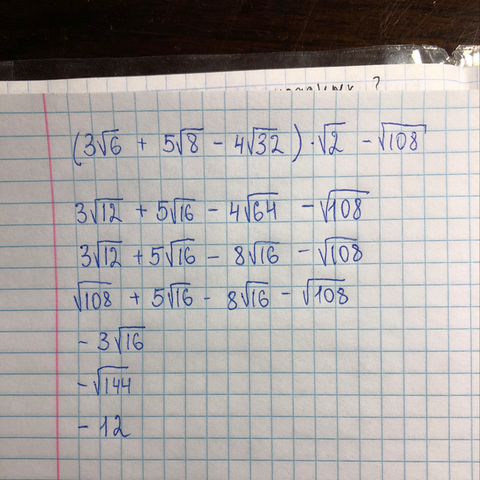 (3√6 + 5√8 - 4√32) · √2 - √108
3√12 + 5√16 - 4√64 - √108
3√12 + 5√16 - 8√16 - √108
√108 + 5√16 - 8√16 - √108
- 3√16
- √144
- 12